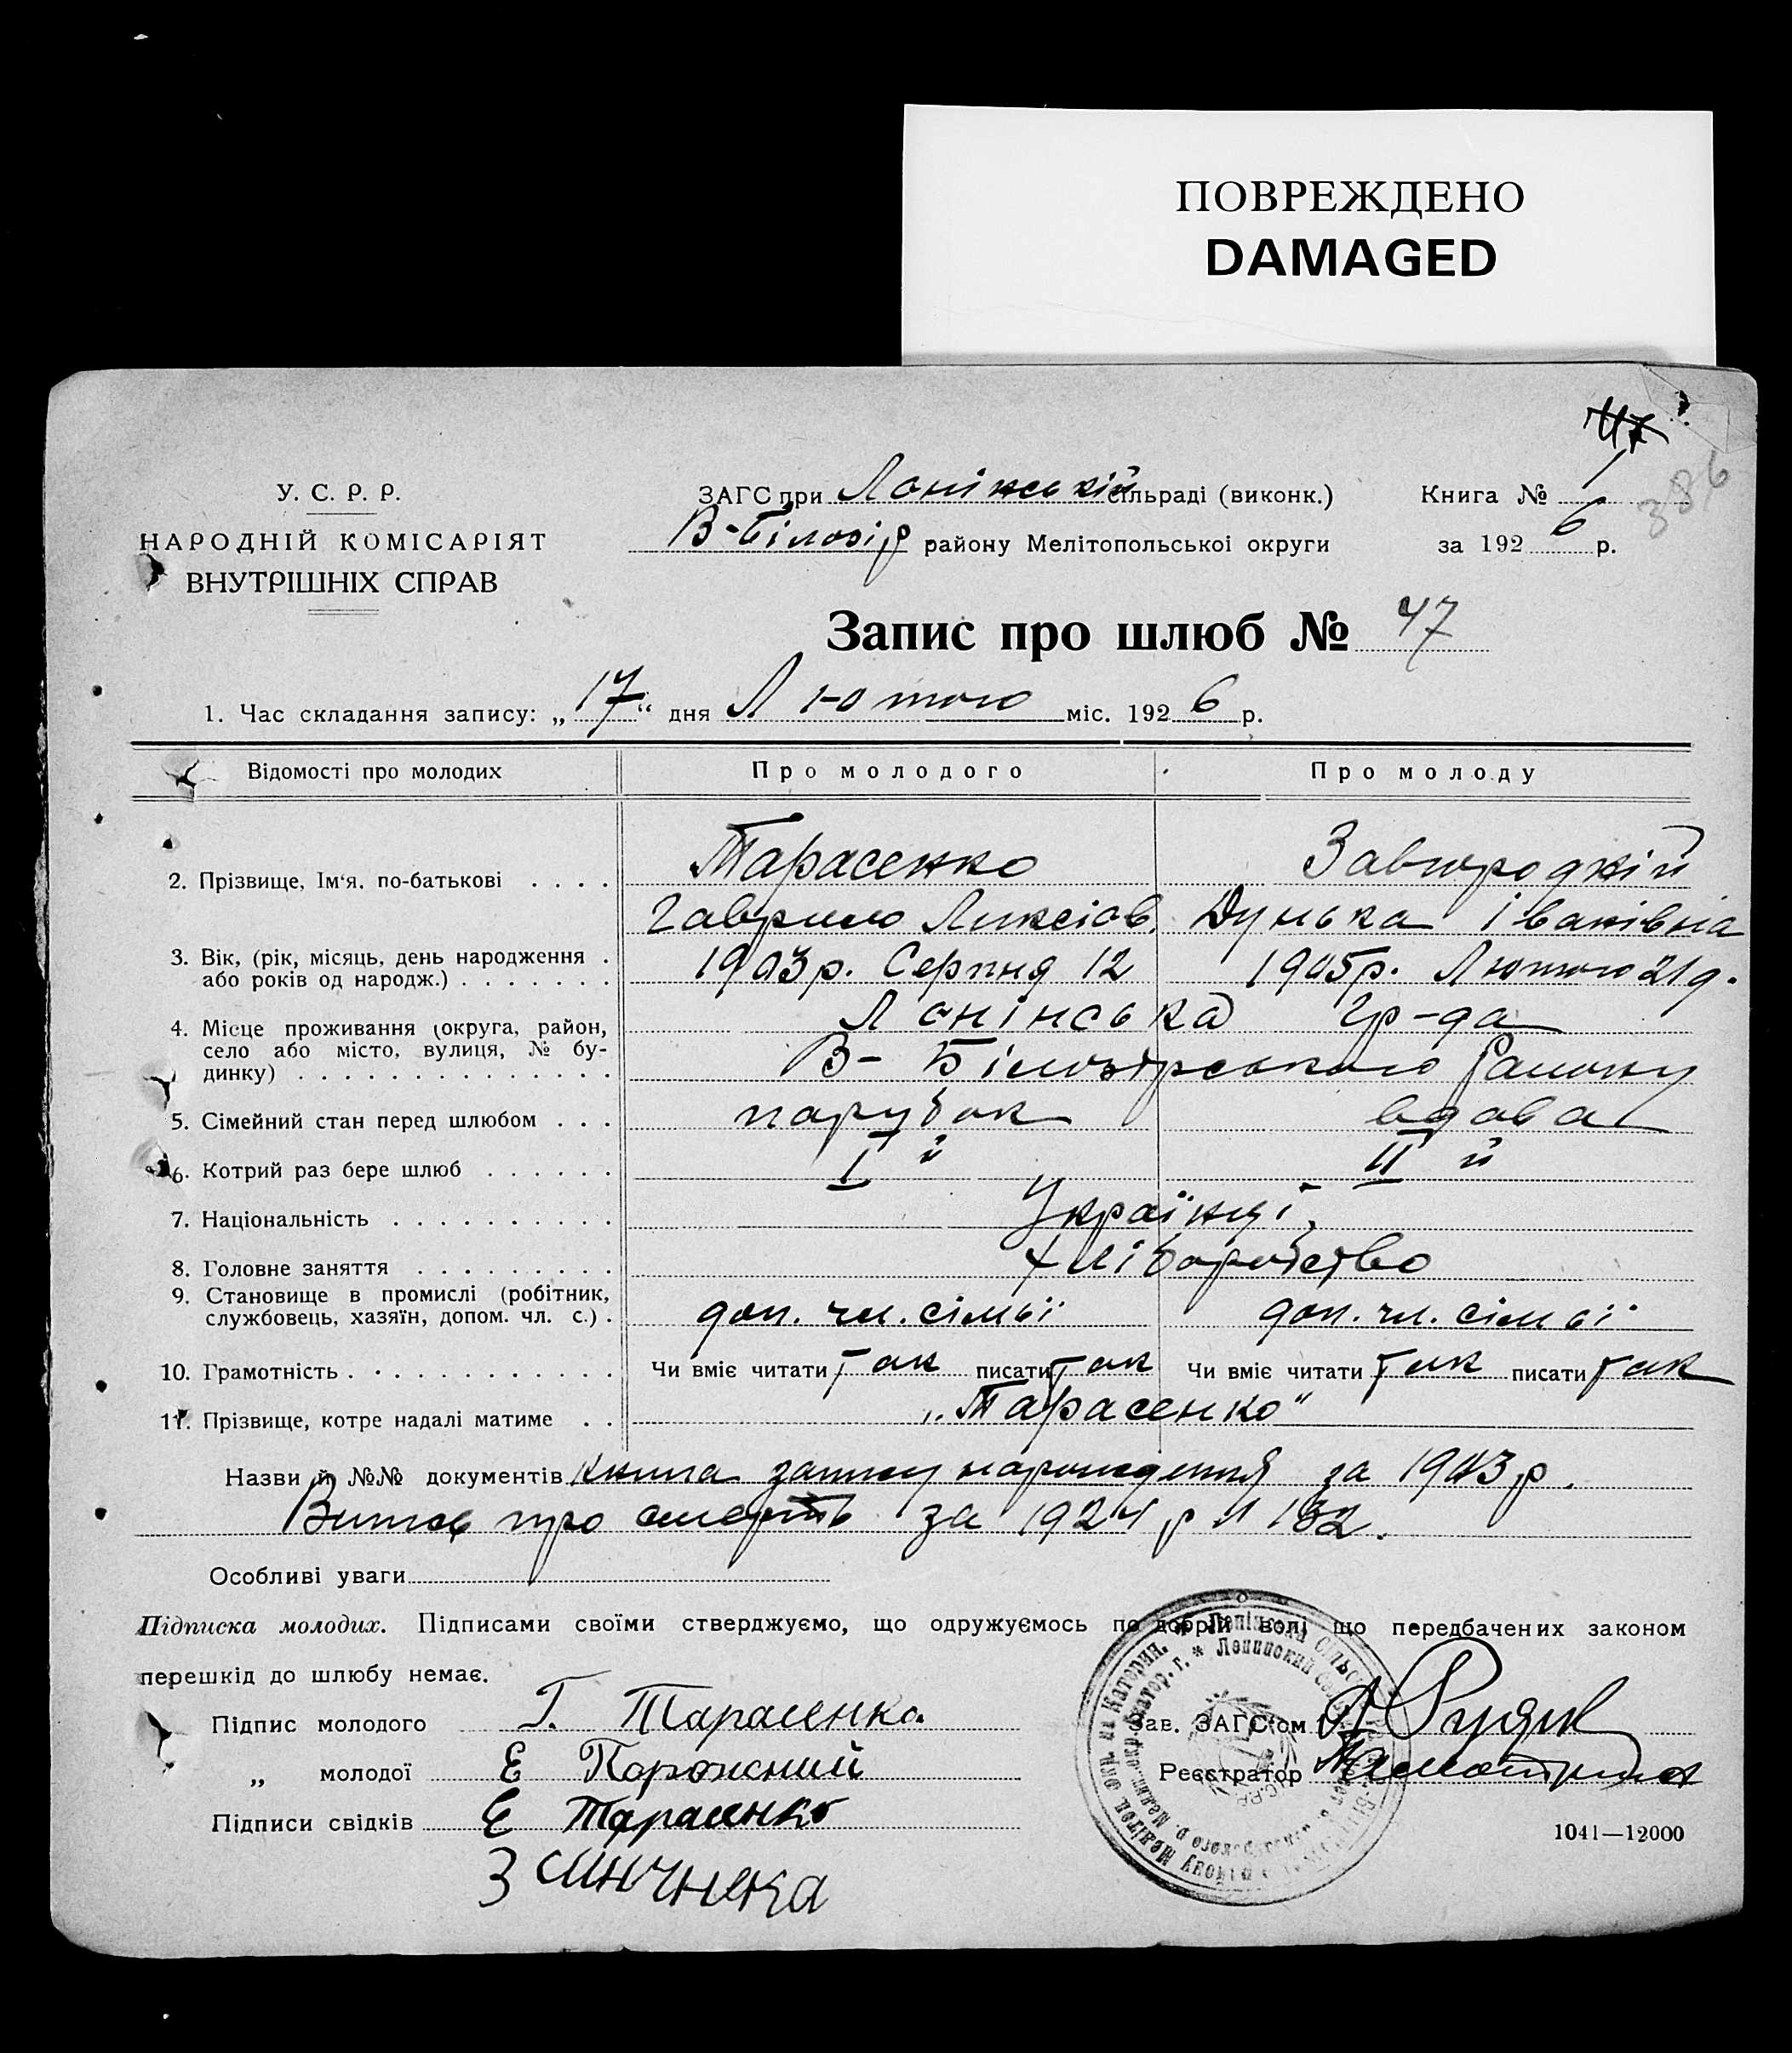 ПОВРЕЖДЕНО
DAMAGED
47
386
У. С. Р. Р.
НАРОДНІЙ КОМІСАРІЯТ
ВНУТРІШНІХ СПРАВ
ЗАГС при Лонінській сільраді (виконк.)
В-Білозір району Мелітопольської округи
Книга № 1
за 1926 р.
Запис про шлюб № 47
1. Час складання запису: „17“ дня Лютого міс. 1926 р.
Відомості про молодих Про молодого Про молоду
2. Прізвище, Ім'я, по-батькові . . . . Тарасенко Завгородній
Гаврило Ликсіов. Дунька Іванівна
3. Вік, (рік, місяць, день народження . або років од народж.) . . . . . . . 1903р. Серпня 12 1905р. Лютого 21 д.
4. Місце проживання (округа, район, Лонінська Гр-да
село або місто, вулиця, № бу-
динку) . . . . . . . . . . . . . . В-Білозірського Району
5. Сімейний стан перед шлюбом . . . парубок вдова
6. Котрий раз бере шлюб . . . . . . І й ІІ й
7. Національність . . . . . . . . . . Українці,
8. Головне заняття . . . . . . . . . хліборобство
9. Становище в промислі (робітник,
службовець, хазяїн, допом. чл. с.) . доп. чл. сімьї доп. чл. сімьї
10. Грамотність . . . . . . . . . . . . Чи вміє читати Так писати Так Чи вміє читати Так писати Так
11. Прізвище, котре надалі матиме . . „Тарасенко“
Назви й №№ документів Книга запису народження за 1903 р.
Витяг про смерть за 1924 р № 132.
Особливі уваги
Підписка молодих. Підписами своїми стверджуємо, що одружуємось по добрій волі що передбачених законом
перешкід до шлюбу немає.
Підпис молодого Г. Тарасенко
„ молодої Е
Підписи свідків Е Тарасенко
Зав. ЗАГС'ом
Реєстратор
1041—12000